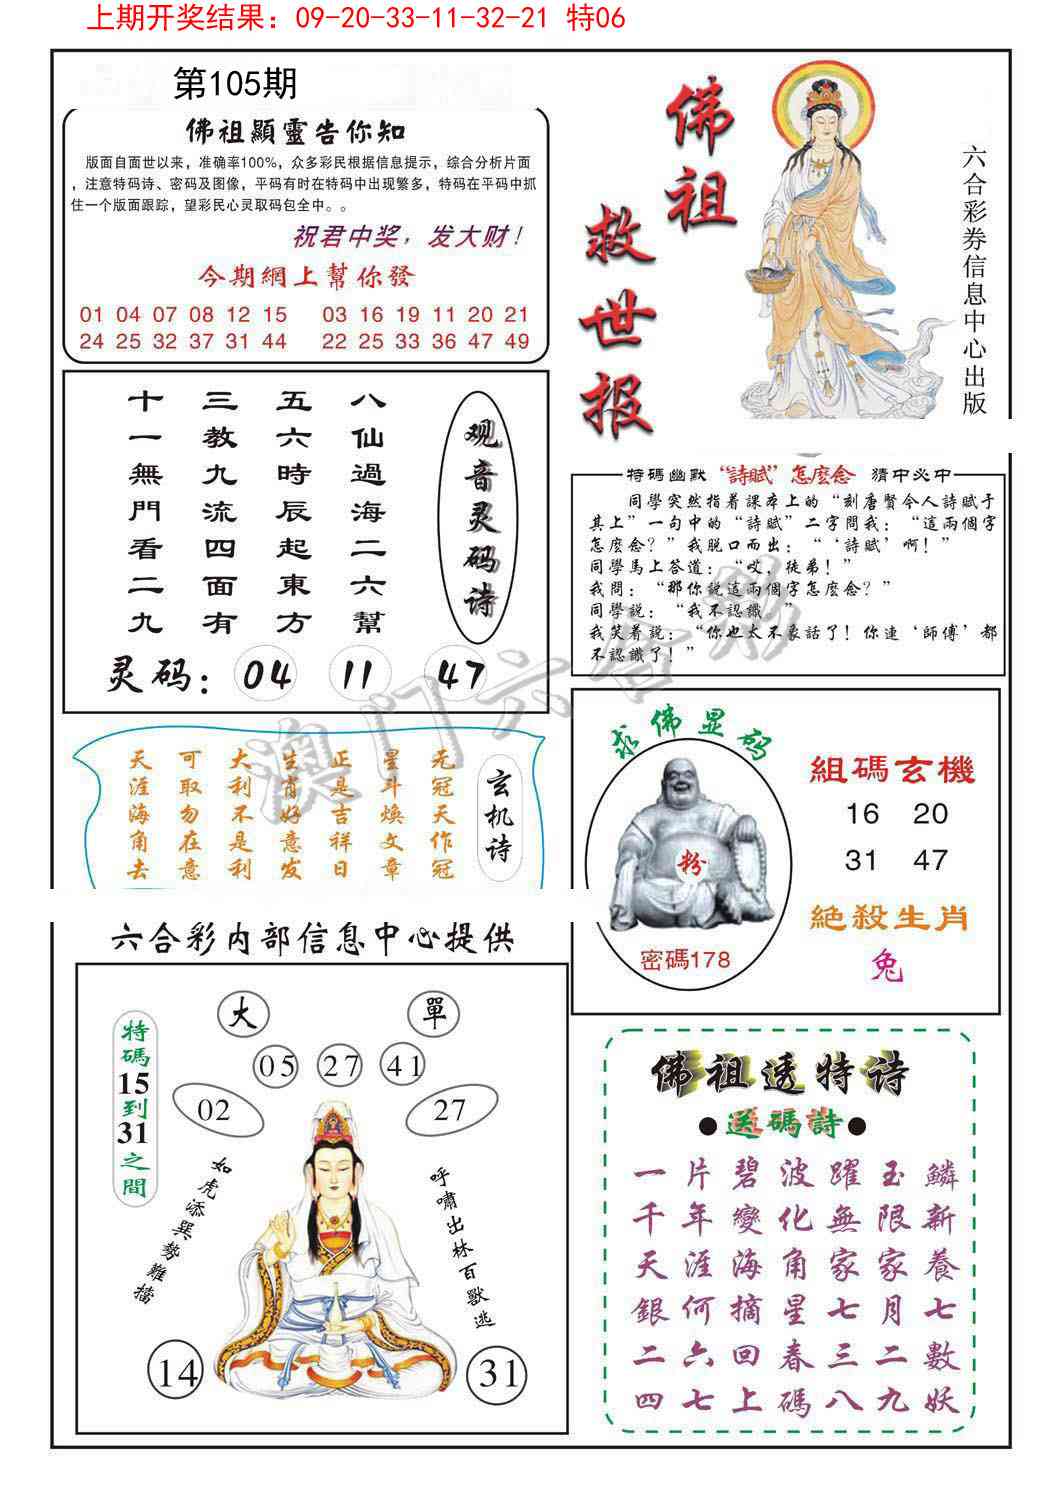 上期开奖结果：09-20-33-11-32-21 特06
第105期
佛祖顯靈告你知
版面自面世以来，准确率100%，众多彩民根据信息提示，综合分析片面
，注意特码诗、密码及图像，平码有时在特码中出现繁多，特码在平码中抓
住一个版面跟踪，望彩民心灵取码包全中。。
祝君中奖，发大财！
今期網上幫你發
01 04 07 08 12 15 03 16 19 11 20 21
24 25 32 37 31 44 22 25 33 36 47 49
佛祖救世报
六合彩券信息中心出版
观音灵码诗
八仙過海二六幫
五六時辰起東方
三教九流四面有
十一無門看二九
灵码：04 11 47
特碼幽默“詩賦”怎麼念 猜中必中
同學突然指着課本上的“刻唐賢今人詩賦于
其上”一句中的“詩賦”二字問我：“這兩個字
怎麼念？”我脱口而出：“‘詩賦’啊！”
同學馬上答道：“哎，徒弟！”
我問：“那你說這兩個字怎麼念？”
同學說：“我不認識。”
我笑着說：“你也太不象話了！你連‘師傅’都
不認識了！”
玄机诗
无冠天作冠
星斗煥文章
正是吉祥日
生肖好意发
大利不是利
可取勿在意
天涯海角去
求佛显码
粉
密碼178
組碼玄機
16 20
31 47
絕殺生肖
兔
六合彩内部信息中心提供
大
單
05 27 41
02
27
特碼15到31之間
如虎添異勢難擋
呼嘯出林百獸逃
14
31
佛祖透特诗
●送碼詩●
一片碧波躍玉鱗
千年變化無限新
天涯海角家家養
銀何摘星七月七
二六回春三二數
四七上碼八九妖
澳门六